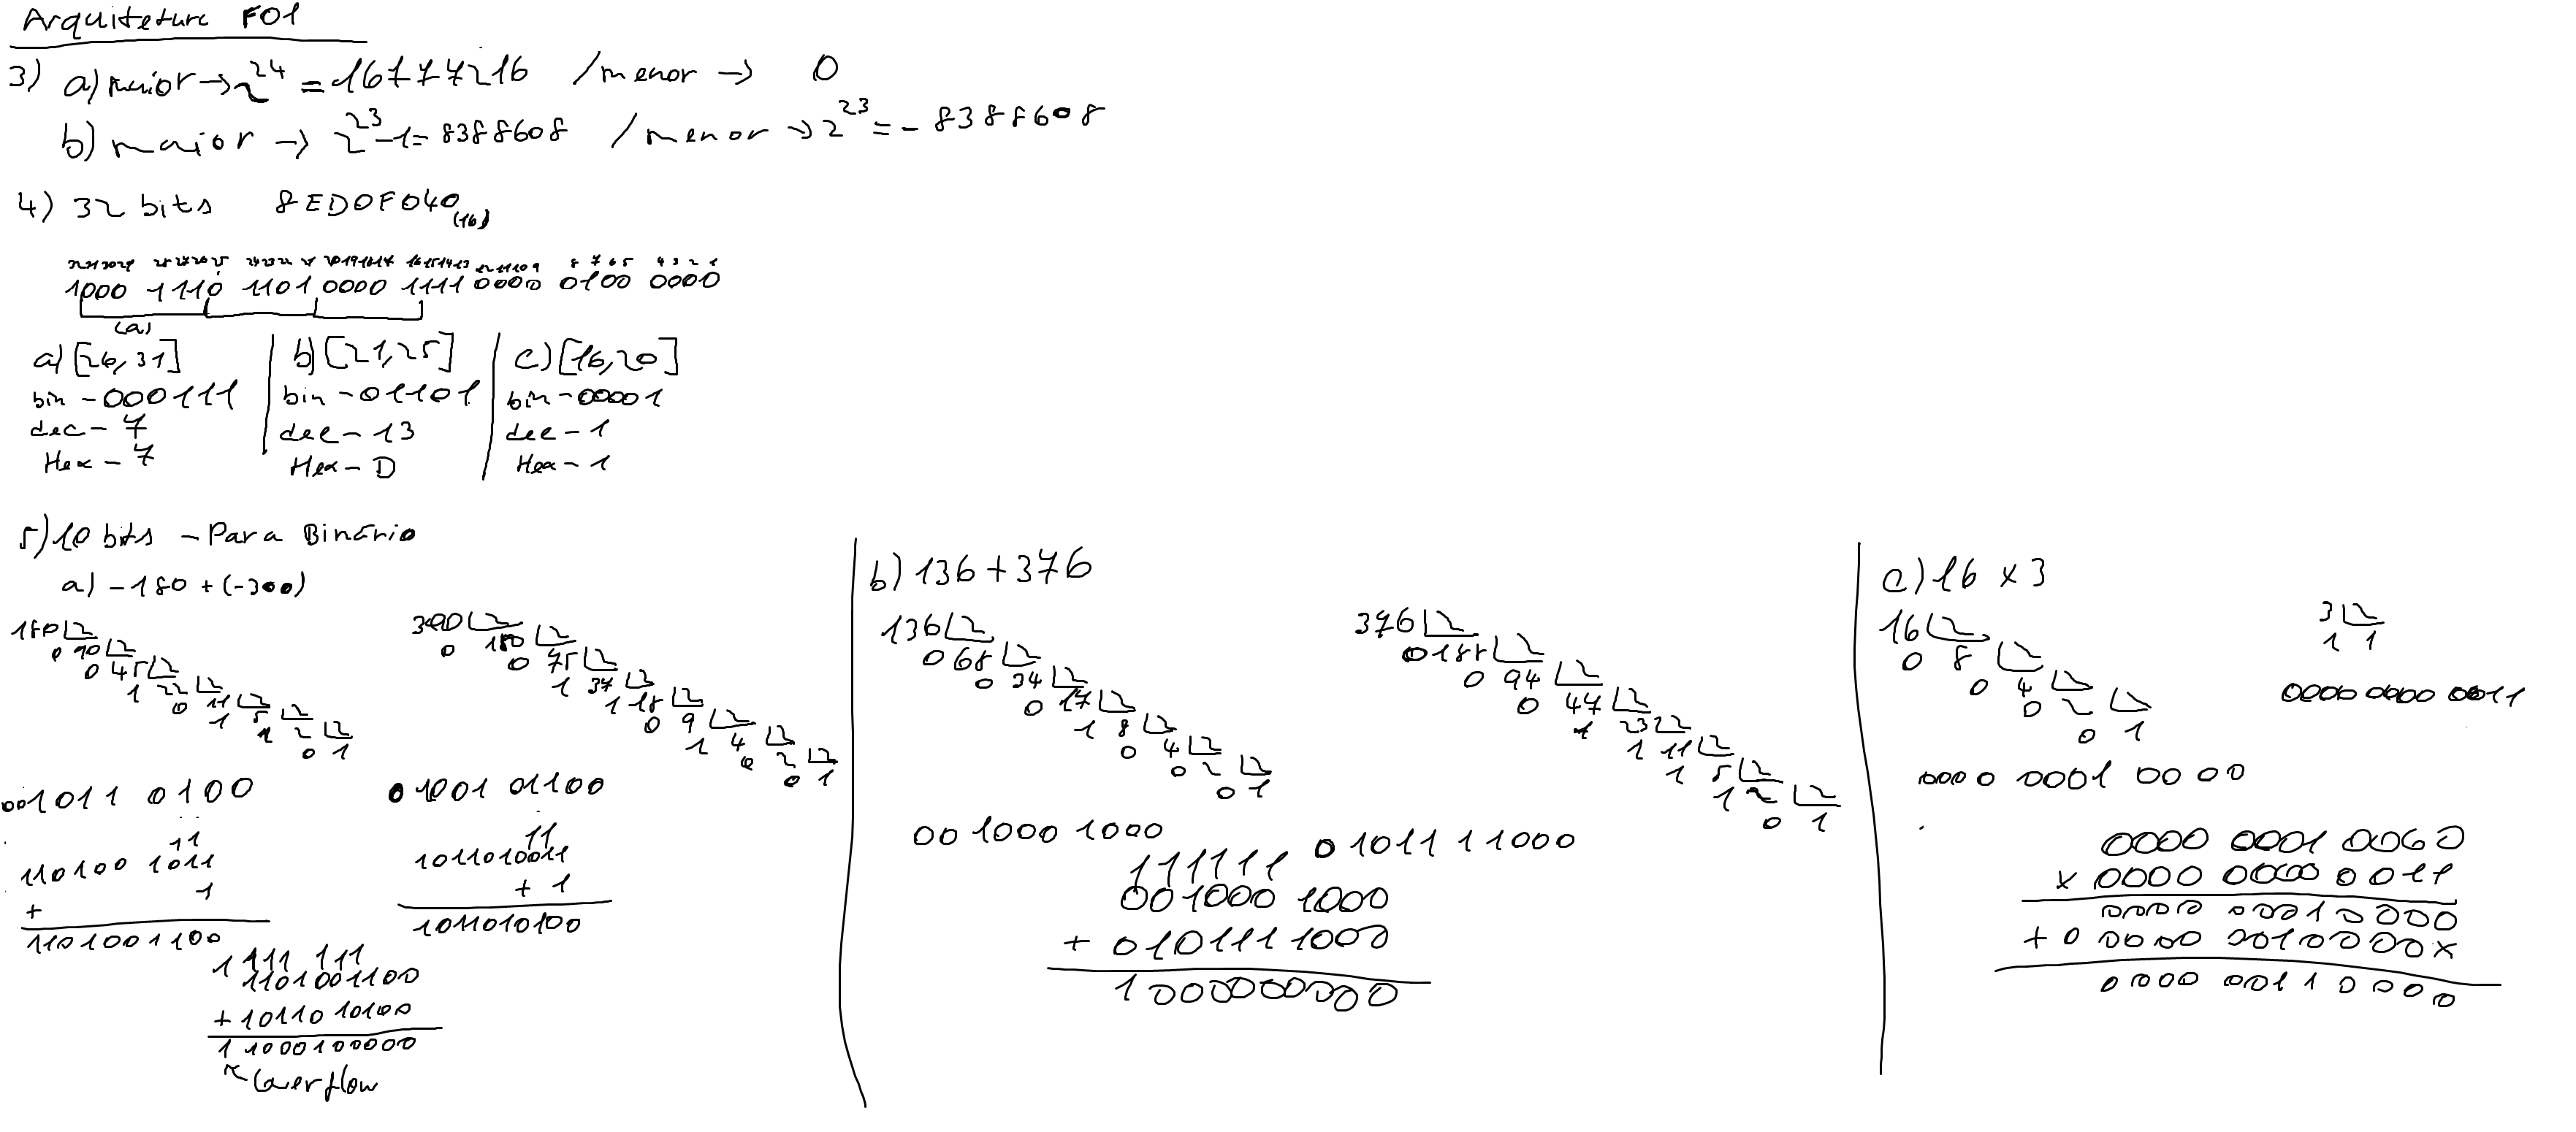 Arquitetura F01
3) a) maior → 2^24 = 16777216 / menor → 0
b) maior → 2^23 -1 = 8388608 / menor → 2^23 = - 8388608
4) 32 bits 8ED0F040(16)
32313029 28272625 242322 21 20191817 16151413 12 11109 8 7 6 5 4 3 2 1
1000 1110 1101 0000 1111 0000 0100 0000
(a)
a) [26,31]
bin - 000111
dec - 7
Hex - 7
b) [21,25]
bin - 01101
dec - 13
Hex - D
c) [16,20]
bin - 00001
dec - 1
Hex - 1
5) 10 bits - Para Binário
a) - 180 + (-300)
180 2
0 90 2
0 45 2
1 22 2
0 11 2
1 5 2
1 2 2
0 1
300 2
0 150 2
0 75 2
1 37 2
1 18 2
0 9 2
1 4 2
0 2 2
0 1
001011 0100
01001 01100
11
110100 1011
+ 1
1101001100
11
1011010011
+ 1
1011010100
1 111 111
1101001100
+ 10110 10100
1 1000100000
overflow
b) 136 + 376
136 2
0 68 2
0 34 2
0 17 2
1 8 2
0 4 2
0 2 2
0 1
376 2
0 188 2
0 94 2
0 47 2
1 23 2
1 11 2
1 5 2
1 2 2
0 1
00 1000 1000
0 1011 11000
111111
001000 1000
+ 010111 1000
1 000000000
c) 16 x 3
16 2
0 8 2
0 4 2
0 2 2
0 1
3 2
1 1
0000 0000 0011
0000 0001 0000
0000 0001 0000
x 0000 0000 0011
0000 00010000
+ 0 0000 0010000x
0 0000 0011 0000